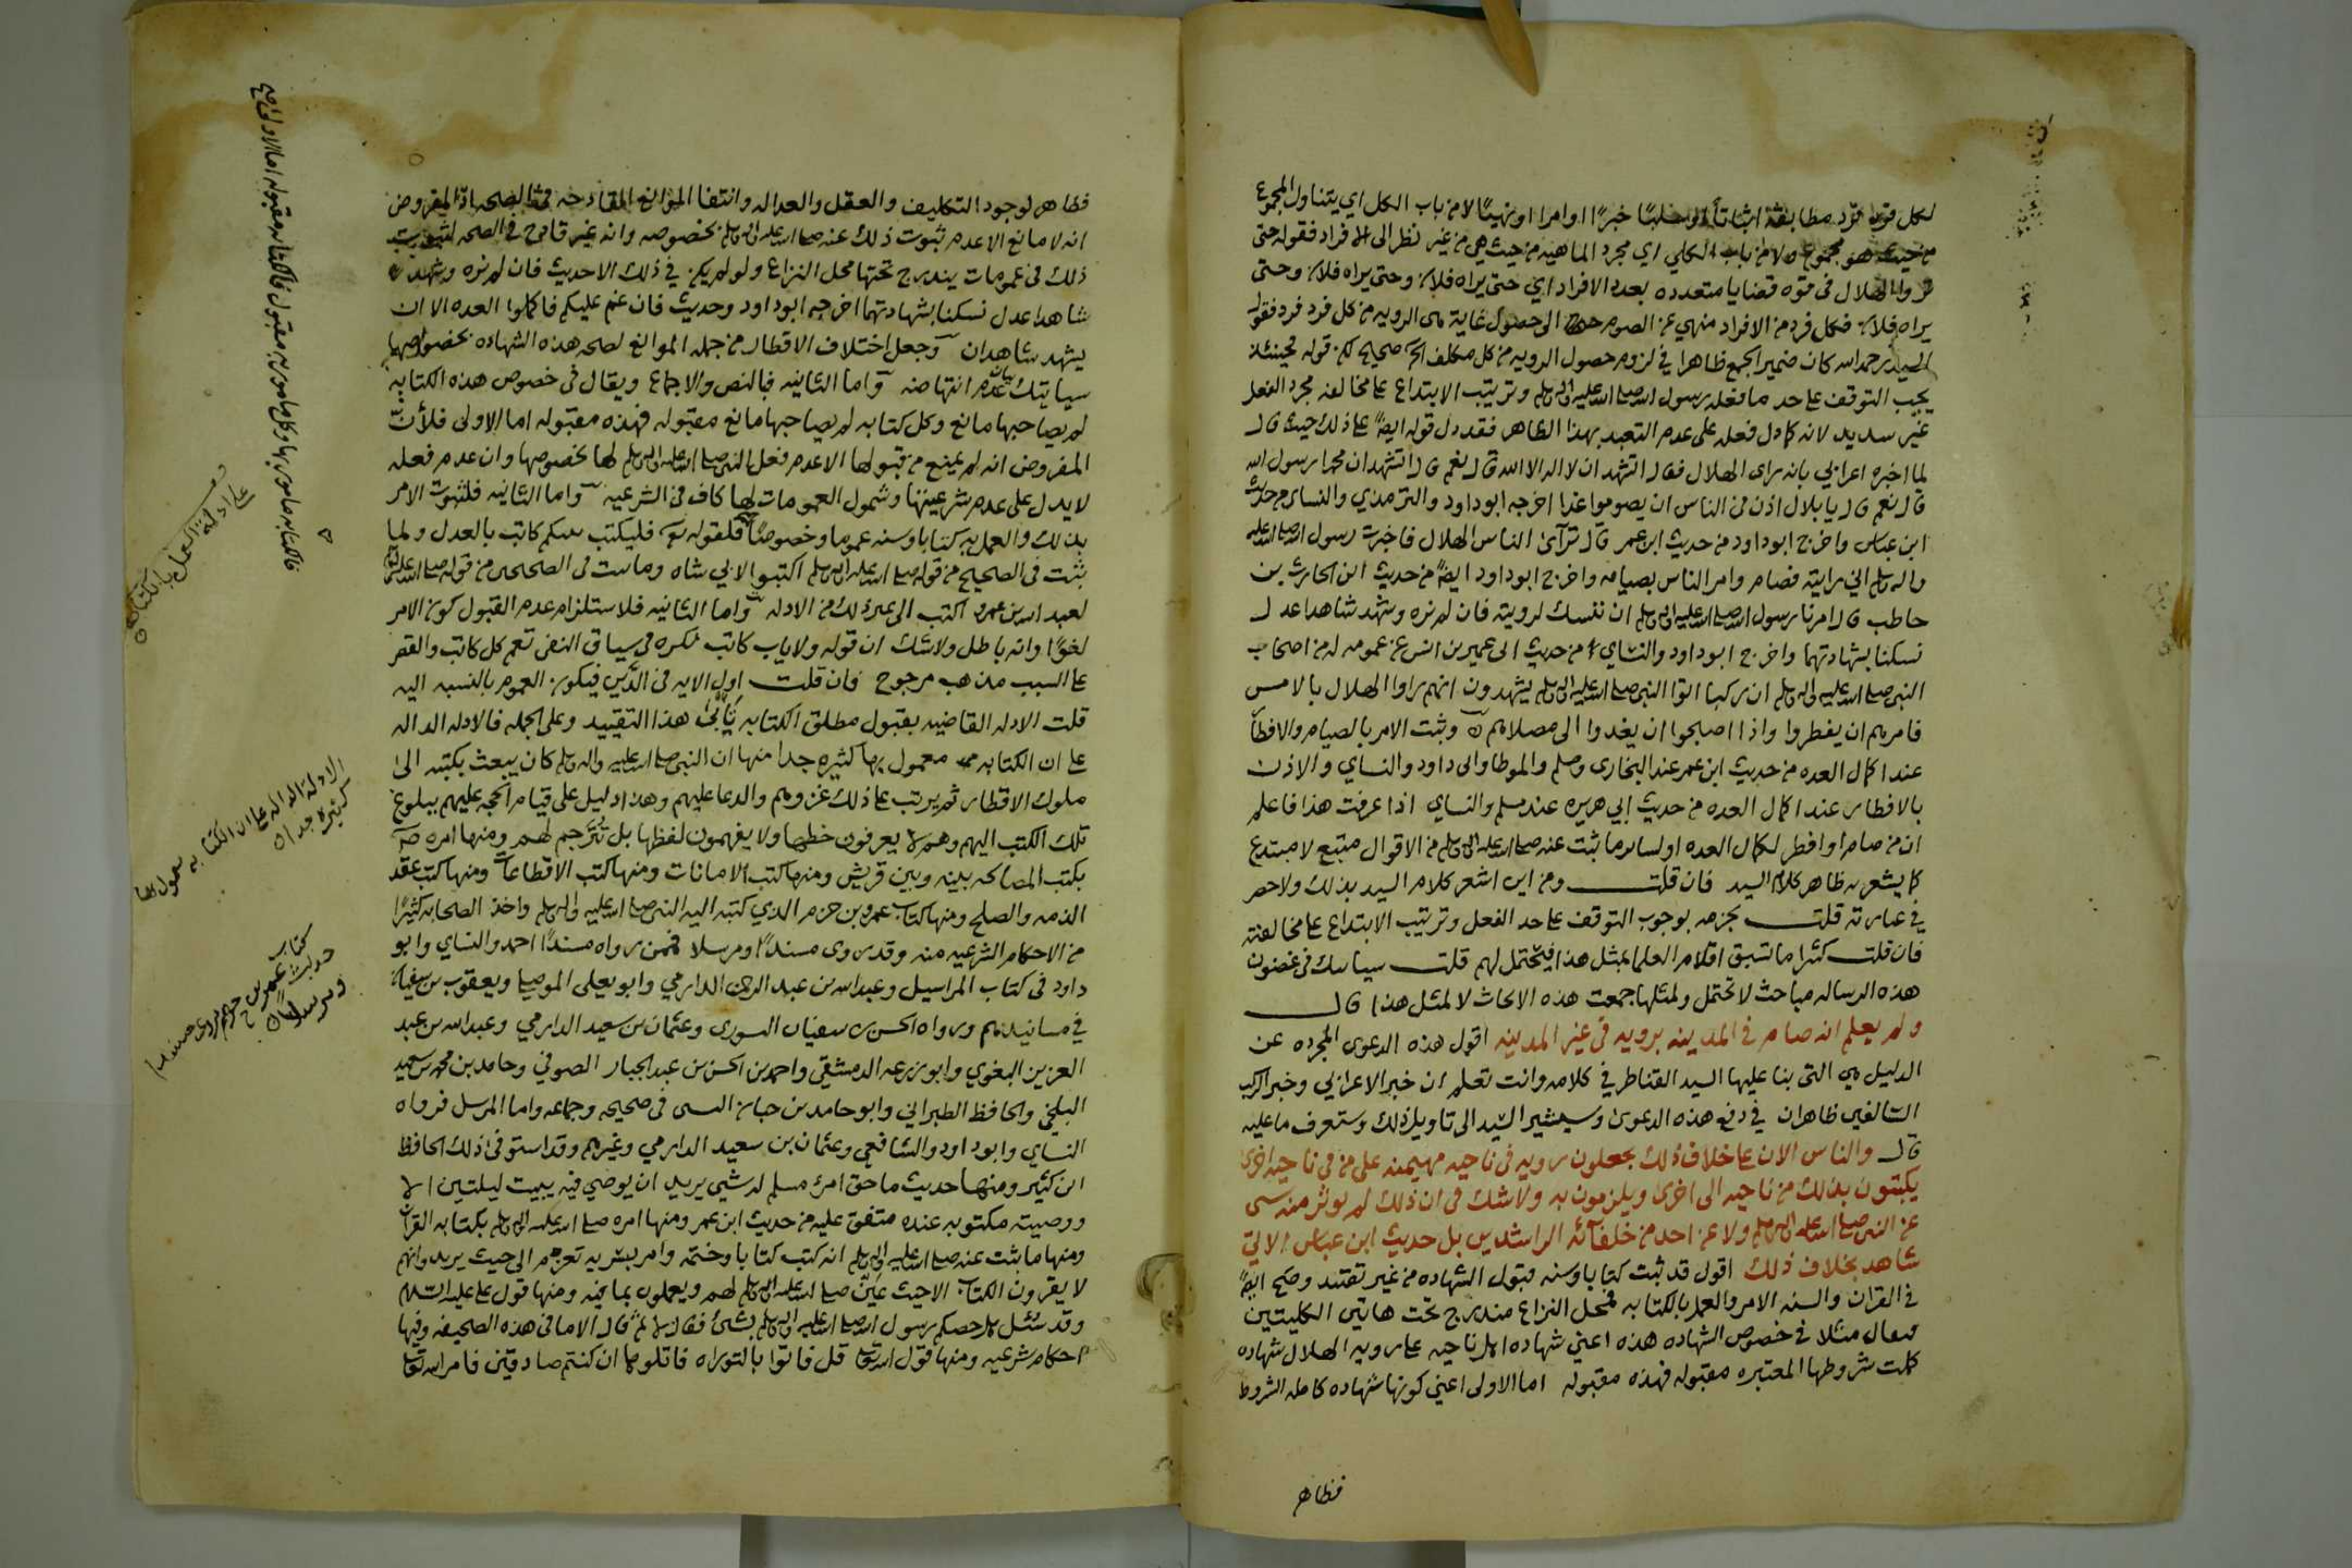 لكل فرد فرد مطابقة اثباتا او سلبا خبرًا او امرا او نهيًا لا من باب الكل اي يتناول المجموع
من حيث هو مجموع ولا من باب الكلي اي مجرد الماهيه من حيث هي من غير نظر الى الافراد فقوله حتى
تروا الهلال في قوه قضايا متعدده بعدد الافراد اي حتى يراه فلان وحتى يراه فلان وحتى
يراه فلان فكل فرد من الافراد منهي عن الصوم الى حصول غاية هى الرويه من كل فرد فرد فقول
السيد رحمه الله كان ضمير الجمع ظاهرا في لزوم حصول الرويه من كل مكلف الخ صحيح لكن قوله فحينئذ
يجب التوقف على حد ما فعله رسول الله صلى الله عليه واله وسلم وترتيب الابتداع على مخالفه مجرد الفعل
غير سديد لانه كما دل فعله على عدم التعبد بهذا الظاهر فقد دل قوله ايضًا على ذلك حيث قال
لما اخبره اعرابي بانه راى الهلال فقال اتشهد ان لا اله الا الله قال نعم قال اتشهد ان محمدا رسول الله
قال نعم قال يا بلال اذن في الناس ان يصوموا غدا اخرجه ابو داود والترمذي والنساي من حديث
ابن عباس واخرج ابو داود من حديث ابن عمر قال تراءى الناس الهلال فاخبرت رسول الله صلى الله عليه
واله وسلم اني رايته فصام وامر الناس بصيامه واخرج ابو داود ايضًا من حديث ابن الحارث بن
حاطب قال امرنا رسول الله صلى الله عليه واله وسلم ان ننسك لرويته فان لم نره وشهد شاهدا عدل
نسكنا بشهادتهما واخرج ابو داود والنساي من حديث ابي عمير بن انس عن عمومه له من اصحاب
النبي صلى الله عليه واله وسلم ان ركبا اتوا النبي صلى الله عليه واله وسلم يشهدون انهم راوا الهلال بالامس
فامرهم ان يفطروا واذا اصبحوا ان يغدوا الى مصلاهم وثبت الامر بالصيام والافطار
عند اكمال العده من حديث ابن عمر عند البخارى ومسلم والموطا وابى داود والنساي والاذن
بالافطار عند اكمال العده من حديث ابي هريره عند مسلم والنساي اذا عرفت هذا فاعلم
ان من صام او افطر لكمال العده او لساير ما ثبت عنه صلى الله عليه واله وسلم من الاقوال متبع لا مبتدع
كما يشعر به ظاهر كلام السيد فان قلت ومن اين اشعر كلام السيد بذلك ولا حصر
في عبارته قلت بجزمه بوجوب التوقف على حد الفعل وترتيب الابتداع على مخالفته
فان قلت كثيرا ما تسبق اقلام العلما بمثل هذا فيحتمل لهم قلت سياتيك في غضون
هذه الرساله مباحث لا تحتمل ولمثلها جمعت هذه الابحاث لا لمثل هذا قال
ولم يعلم انه صام في المدينه برويه في غير المدينه اقول هذه الدعوى المجرده عن
الدليل هي التى بنا عليها السيد القناطر في كلامه وانت تعلم ان خبر الاعرابي وخبر الركب
السالفين ظاهران في دفع هذه الدعوى وسيشير السيد الى تاويل ذلك وستعرف ما عليه
قال والناس الان على خلاف ذلك يجعلون رويه في ناحيه مهيمنه على من في ناحيه اخرى
يكتبون بذلك من ناحيه الى اخرى ويلزمون به ولا شك في ان ذلك لم يوثر منه شى
عن النبي صلى الله عليه واله وسلم ولا عن احد من خلفآئه الراشدين بل حديث ابن عباس الاتي
شاهد بخلاف ذلك اقول قد ثبت كتابا وسنه قبول الشهاده من غير تقييد وصح ايضًا
في القران والسنه الامر والعمل بالكتابه فمحل النزاع مندرج تحت هاتين الكليتين
فيقال مثلا في خصوص الشهاده هذه اعني شهاده اهل ناحيه على رويه الهلال شهاده
كملت شروطها المعتبره مقبوله فهذه مقبوله اما الاولى اعني كونها شهاده كامله الشروط
فظاهر
فظاهر لوجود التكليف والعقل والعداله وانتفا الموانع القادحه في الصحه اذ المفروض
انه لا مانع الا عدم ثبوت ذلك عنه صلى الله عليه واله وسلم بخصوصه وانه غير قادح في الصحه لثبوت
ذلك في عمومات يندرج تحتها محل النزاع ولو لم يكن في ذلك الا حديث فان لم نره وشهد
شاهدا عدل نسكنا بشهادتهما اخرجه ابو داود وحديث فان غم عليكم فاكملوا العده الا ان
يشهد شاهدان وجعل اختلاف الاقطار من جمله الموانع لصحه هذه الشهاده بخصوصها
سياتيك بيان عدم انتهاضه واما الثانيه فبالنص والاجماع ويقال في خصوص هذه الكتابه
لم يصاحبها مانع وكل كتابه لم يصاحبها مانع مقبوله فهذه مقبوله اما الاولى فلأن
المفروض انه لم يمنع من قبولها الا عدم فعل النبي صلى الله عليه واله وسلم لها بخصوصها وان عدم فعله
لا يدل على عدم شرعيتها وشمول العمومات لها كاف في الشرعيه واما الثانيه فلثبوت الامر
بذلك والعمل به كتابا وسنه عموما وخصوصًا فلقوله تعالى فليكتب بينكم كاتب بالعدل ولما
ثبت في الصحيح من قوله صلى الله عليه واله وسلم اكتبوا لابي شاه وما ثبت في الصحيحين من قوله صلى الله عليه
لعبد الله بن عمرو اكتب الى غير ذلك من الادله واما الثانيه فلاستلزام عدم القبول كون الامر
لغوًا وانه باطل ولا شك ان قوله ولا ياب كاتب نكره في سياق النفي تعم كل كاتب والقصر
على السبب مذهب مرجوح فان قلت اول الايه في الدَّين فيكون العموم بالنسبه اليه
قلت الادله القاضيه بقبول مطلق الكتابه تأبى هذا التقييد وعلى الجمله فالادله الداله
على ان الكتابه معمول بها كثيره جدا منها ان النبي صلى الله عليه واله وسلم كان يبعث بكتبه الى
ملوك الاقطار ثم يرتب على ذلك غزوهم والدعا عليهم وهذا دليل على قيام الحجه عليهم ببلوغ
تلك الكتب اليهم وهم لا يعرفون خطها ولا يفهمون لفظها بل تترجم لهم ومنها امره
بكتب المصالحه بينه وبين قريش ومنها كتب الامانات ومنها كتب الاقطاعات ومنها كتب عقد
الذمه والصلح ومنها كتاب عمرو بن حزم الذي كتبه اليه النبي صلى الله عليه واله وسلم واخذ الصحابه كثيرًا
من الاحكام الشرعيه منه وقد روى مسندًا ومرسلا فممن رواه مسندًا احمد والنساي وابو
داود في كتاب المراسيل وعبد الله بن عبد الرحمن الدارمي وابو يعلى الموصلي ويعقوب بن سفيان
في مسانيدهم ورواه الحسن بن سفيان النسوى وعثمان بن سعيد الدارمي وعبد الله بن عبد
العزيز البغوي وابو زرعه الدمشقي واحمد بن الحسن بن عبد الجبار الصوفي وحامد بن محمد بن سعيد
البلخي والحافظ الطبراني وابو حامد بن حبان البستى في صحيحه وجماعه واما المرسل فرواه
النساي وابو داود والشافعي وعثمان بن سعيد الدارمي وغيرهم وقد استوفى ذلك الحافظ
ابن كثير ومنها حديث ما حق امرئ مسلم له شي يريد ان يوصي فيه يبيت ليلتين الا
ووصيته مكتوبه عنده متفق عليه من حديث ابن عمر ومنها امره صلى الله عليه واله وسلم بكتابه القران
ومنها ما ثبت عنه صلى الله عليه واله وسلم انه كتب كتابا وختمه وامر بسريه تعزم الى حيث يريد وانهم
لا يقرون الكتاب الا حيث عيّن صلى الله عليه واله وسلم لهم ويعملون بما فيه ومنها قول علي عليه السلام
وقد سئل هل خصكم رسول الله صلى الله عليه واله وسلم بشئ فقال لا ثم قال الا ما في هذه الصحيفه وفيها
احكام شرعيه ومنها قول الله تعالى قل فاتوا بالتوراه فاتلوها ان كنتم صادقين فامر الله تعالى
على ادلة العمل بالكتابه
الادلة الداله على ان الكتابه معمول بها
كثيره جدا
كتاب
حديث عمرو بن حزم روى مسندا
ومرسلا